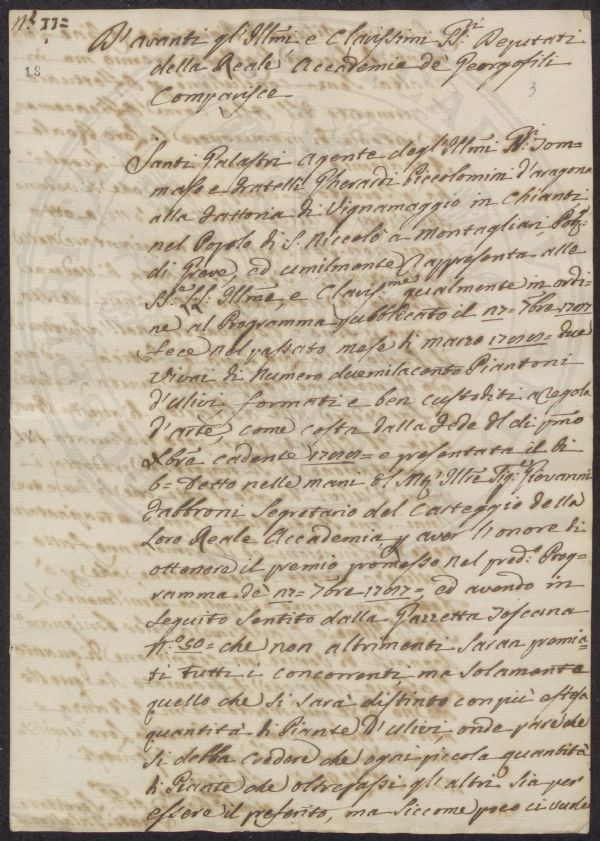 N.° 77=
18
3
D'avanti gl'Illmi e Clarissimi SS.ri Deputati
della Reale Accademia de Georgofili
Comparisce
Santi Palastri agente degl'Illmi SS.ri Tom=
maso e Fratelli Gherardi Piccolomini d'aragona
alla Fattoria di Vignamaggio in Chianti
nel Popolo di S. Niccolò a Montagliari Pot.ria
di Greve, ed umilmente Rappresenta alle
SS.e LL: Illme, e Claris.me qualmente in ordi=
ne al Programma pubblicato il
fece nel passato mese di marzo due
Vivai di Numero duemilacento Piantoni
d'Ulivi, formati e ben custoditi a regola
d'arte, come costa dalla Fede del di p.mo
Xbre cadente e presentata il di
6= Detto nelle mani del Mg.e Illre Sig.e Giovanni
Fabbroni Segretario del Carteggio della
Loro Reale Accademia p aver l'onore di
ottenere il premio promesso nel pred.o Prog=
ramma de 7bre ed avendo in
seguito sentito dalla Gazzetta Toscana
N.o 50= che non altrimenti saran premia=
ti tutti i concorrenti ma solamente
quello che si sarà distinto con più estesa
quantità di Piante D'Ulivi onde pare che
si debba credere che ogni piccola quantità
di Piante che oltrepassi gl'altri sia per
essere il preferito, ma siccome poco ci vuole